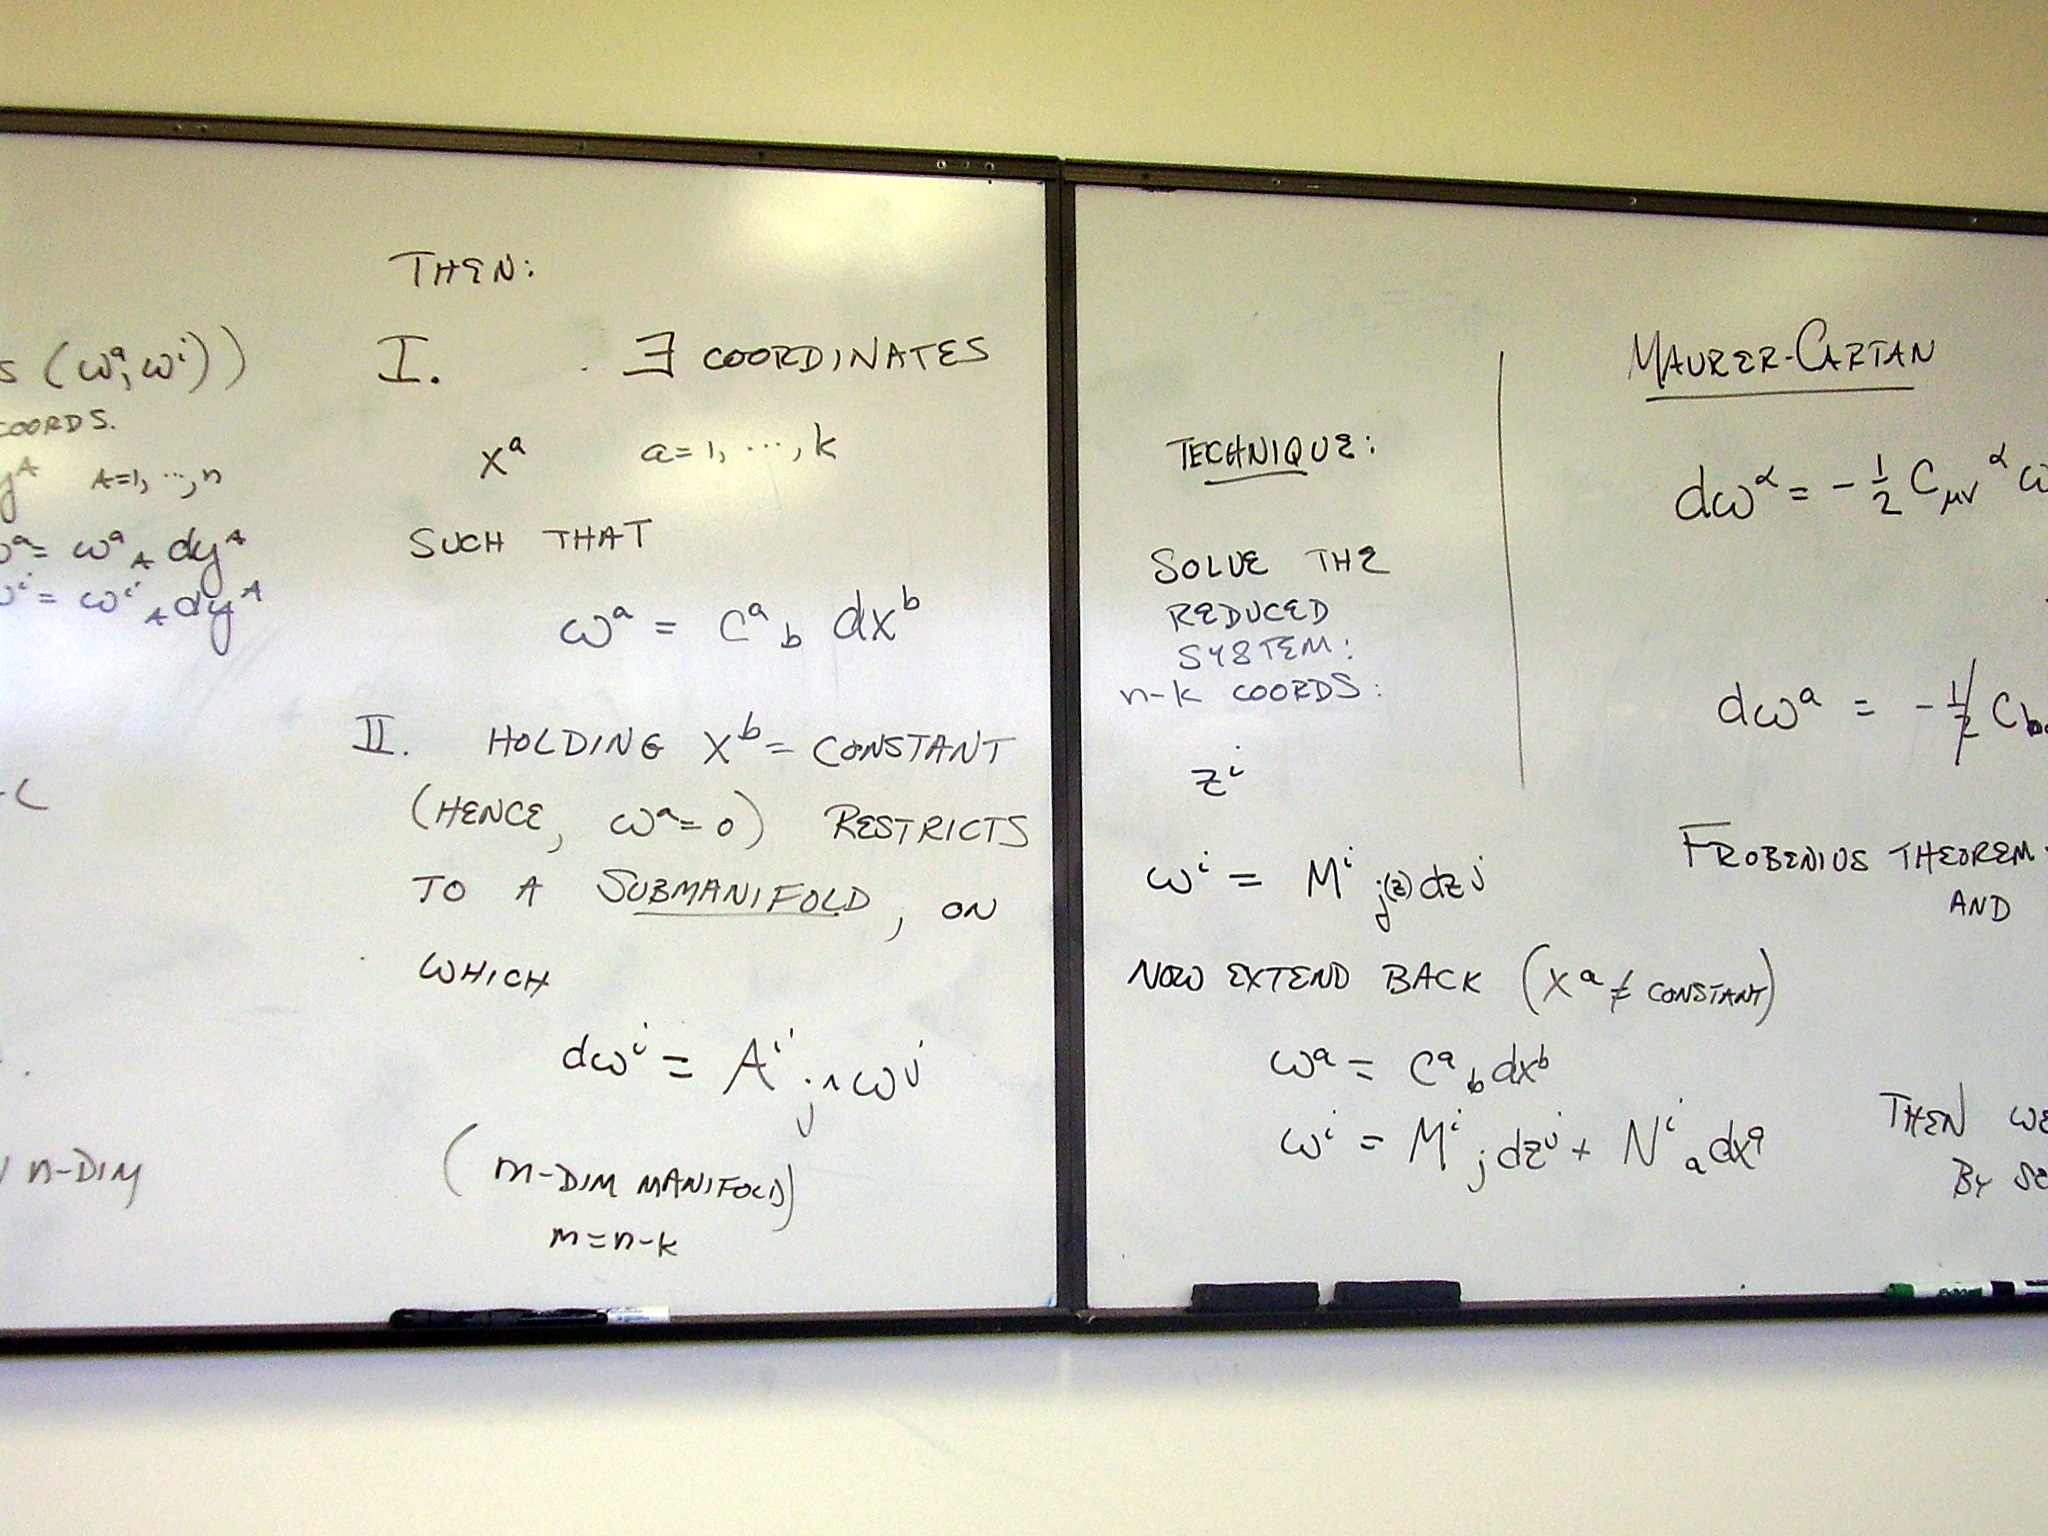 S (ωᵃ, ωⁱ))
COORDS.
yᴬ A=1, ..., n
ωᵃ = ωᵃ_A dyᴬ
ωⁱ = ωⁱ_A dyᴬ
n-DIM
THEN:
I. ∃ COORDINATES
xᵃ a=1, ..., k
SUCH THAT
ωᵃ = Cᵃ_b dxᵇ
II. HOLDING xᵇ = CONSTANT
(HENCE, ωᵃ=0) RESTRICTS
TO A SUBMANIFOLD, ON
WHICH
dωⁱ = Aⁱ_j ∧ ωʲ
(m-DIM MANIFOLD)
m=n-k
TECHNIQUE:
SOLVE THE
REDUCED
SYSTEM:
n-k COORDS:
zⁱ
ωⁱ = Mⁱ_j(z) dzʲ
NOW EXTEND BACK (xᵃ ≠ CONSTANT)
ωᵃ = Cᵃ_b dxᵇ
ωⁱ = Mⁱ_j dzʲ + Nⁱ_a dxᵃ
MAURER-CARTAN
dω^α = - 1/2 C_μν^α ω
dωᵃ = - 1/2 C_b
FROBENIUS THEOREM
AND
THEN WE
BY